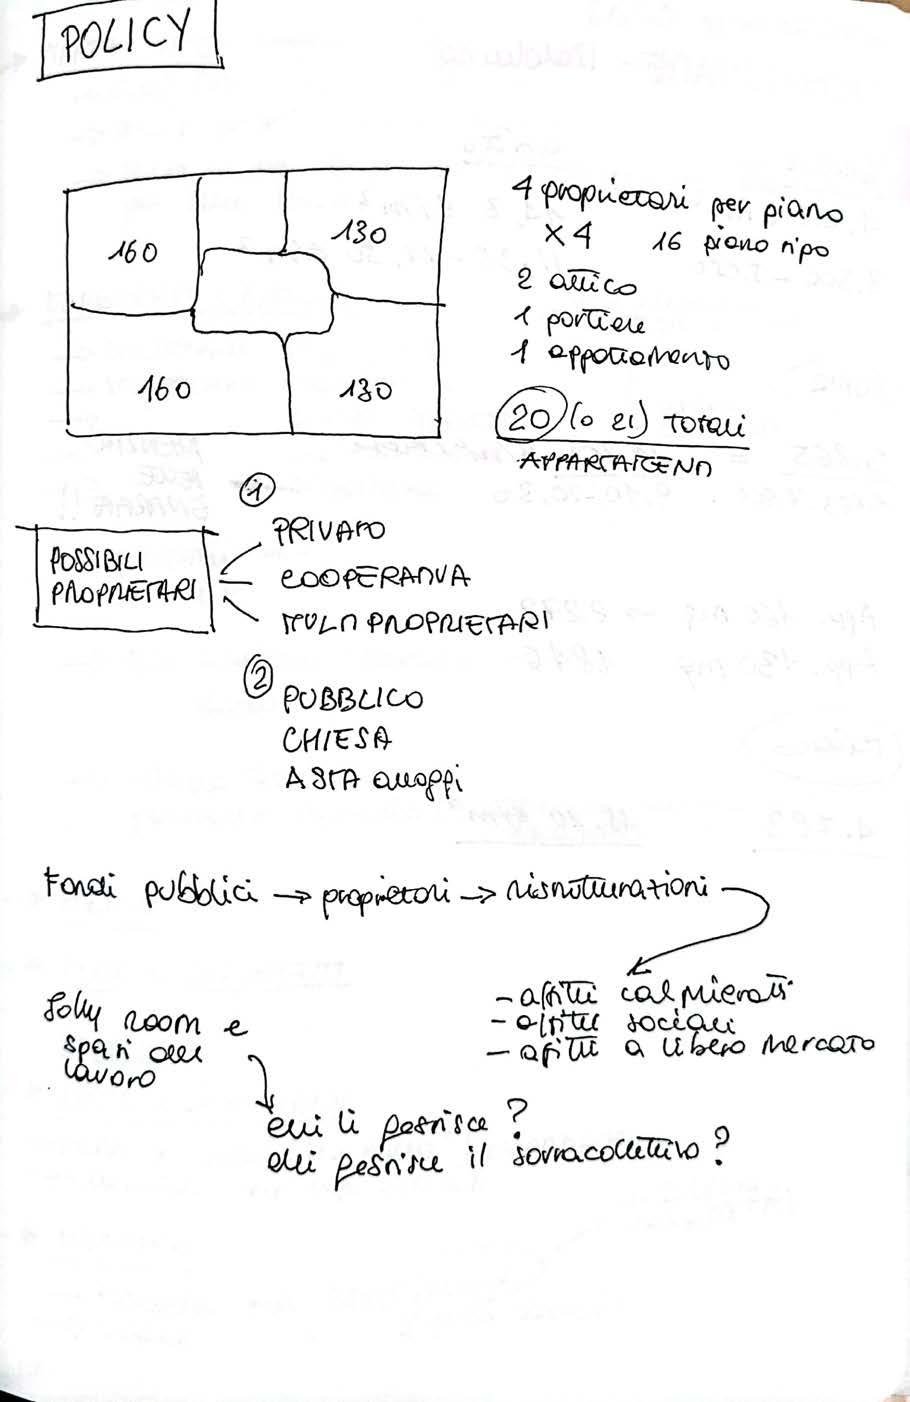 POLICY
160
130
160
130
4 proprietari per piano
x 4 16 piano tipo
2 attico
1 portiere
1 appartamento
20 (o 21) Totali
APPARTATGENO
1
POSSIBILI
PROPRIETARI
PRIVATO
COOPERATIVA
MULTIPROPRIETARI
2
PUBBLICO
CHIESA
ASTA alloggi
Fondi pubblici → proprietari → ristrutturazioni
- affitti calmierati
- affitti sociali
- affitti a libero mercato
Jolly room e
spazi del
lavoro
chi li gestisce?
chi gestisce il sovracollettivo?